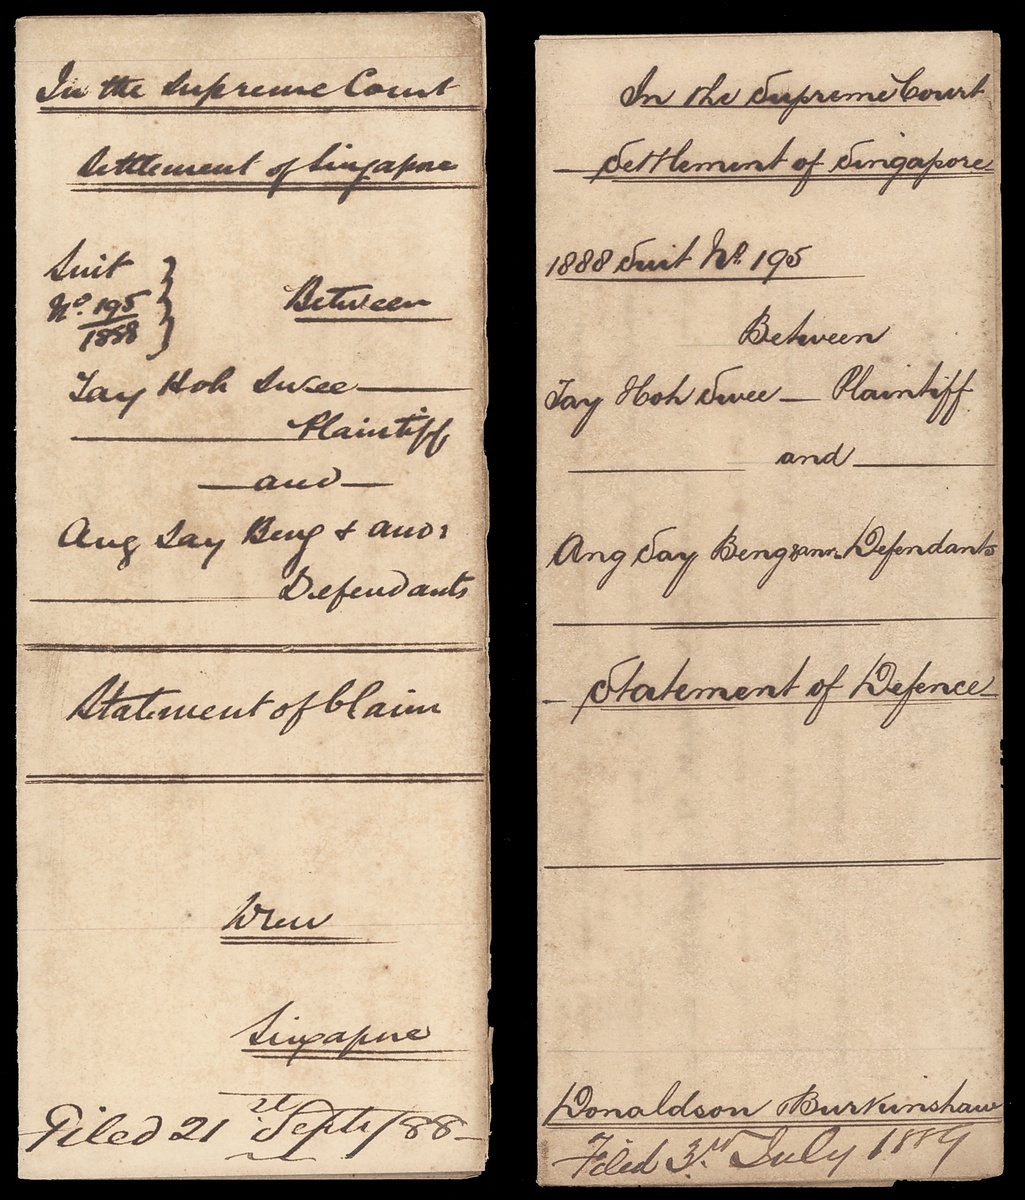 In the Supreme Court
Settlement of Singapore
Suit
No. 195
1888
Between
Tay Hoh Swee
Plaintiff
and
Ang Say Beng & anor
Defendants
Statement of Claim
Wren
Singapore
Filed 21st Sept/88
In the Supreme Court
Settlement of Singapore
1888 Suit No. 195
Between
Tay Hoh Swee — Plaintiff
and
Ang Say Beng & anr. Defendants
Statement of Defence
Donaldson Burkinshaw
Filed 3rd July 1889